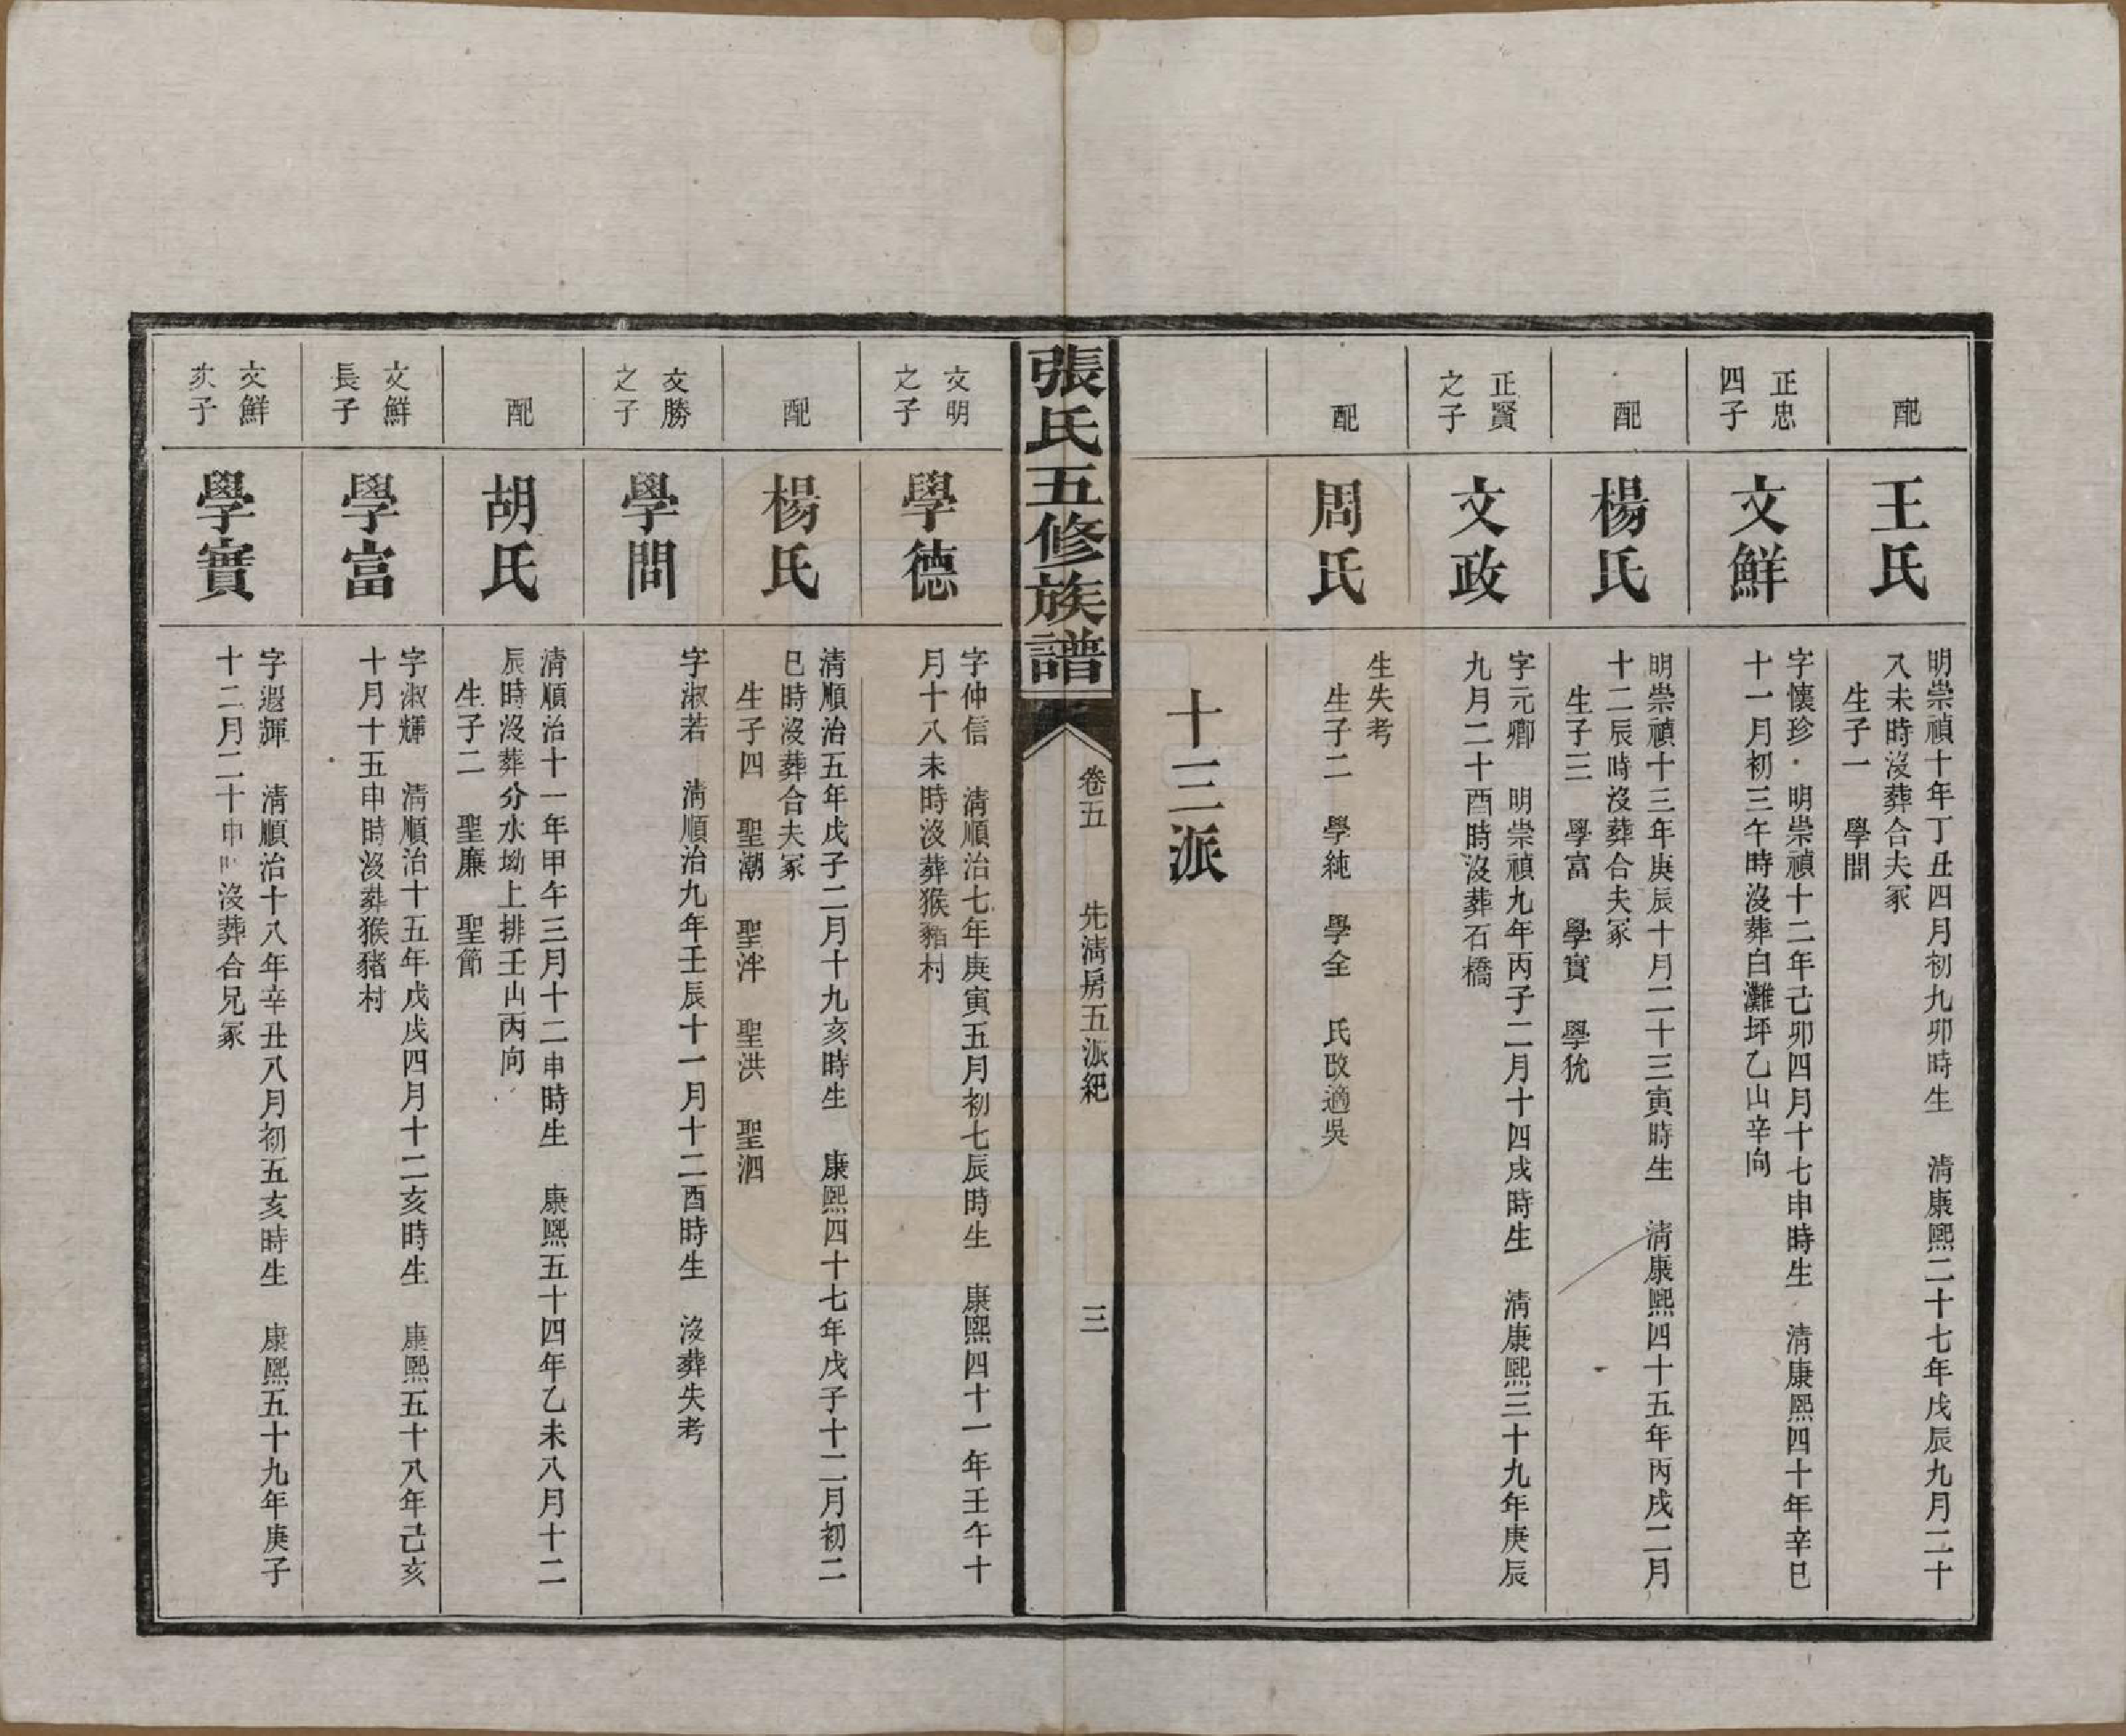 配
王氏
明崇禎十年丁丑四月初九卯時生　清康熙二十七年戊辰九月二十
八未時沒葬合夫冢
生子一　學問
正忠
四子
文鮮
字懷珍　明崇禎十二年己卯四月十七申時生　清康熙四十年辛巳
十一月初三午時沒葬白灘坪乙山辛向
配
楊氏
明崇禎十三年庚辰十月二十三寅時生　清康熙四十五年丙戌二月
十二辰時沒葬合夫冢
生子三　學富　學實　學狁
正賢
之子
文政
字元卿　明崇禎九年丙子二月十四戌時生　清康熙三十九年庚辰
九月二十酉時沒葬石橋
配
周氏
生失考
生子二　學純　學全　氏改適吳
十三派
張氏五修族譜
卷五　先清房五派紀　三
文明
之子
學德
字仲信　清順治七年庚寅五月初七辰時生　康熙四十一年壬午十
月十八未時沒葬猴豬村
配
楊氏
清順治五年戊子二月十九亥時生　康熙四十七年戊子十二月初二
巳時沒葬合夫冢
生子四　聖潮　聖泮　聖洪　聖泗
文勝
之子
學問
字淑若　清順治九年壬辰十一月十二酉時生　沒葬失考
配
胡氏
清順治十一年甲午三月十二申時生　康熙五十四年乙未八月十二
辰時沒葬分水坳上排壬山丙向
生子二　聖廉　聖節
文鮮
長子
學富
字淑輝　清順治十五年戊戌四月十二亥時生　康熙五十八年己亥
十月十五申時沒葬猴豬村
文鮮
次子
學實
字遐輝　清順治十八年辛丑八月初五亥時生　康熙五十九年庚子
十二月二十申時沒葬合兄冢